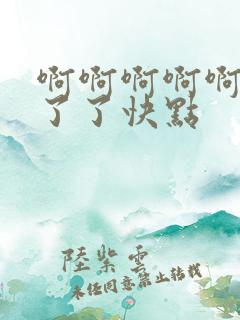 啊啊啊啊啊
了了快點
陸紫雲
未經同意禁止轉載